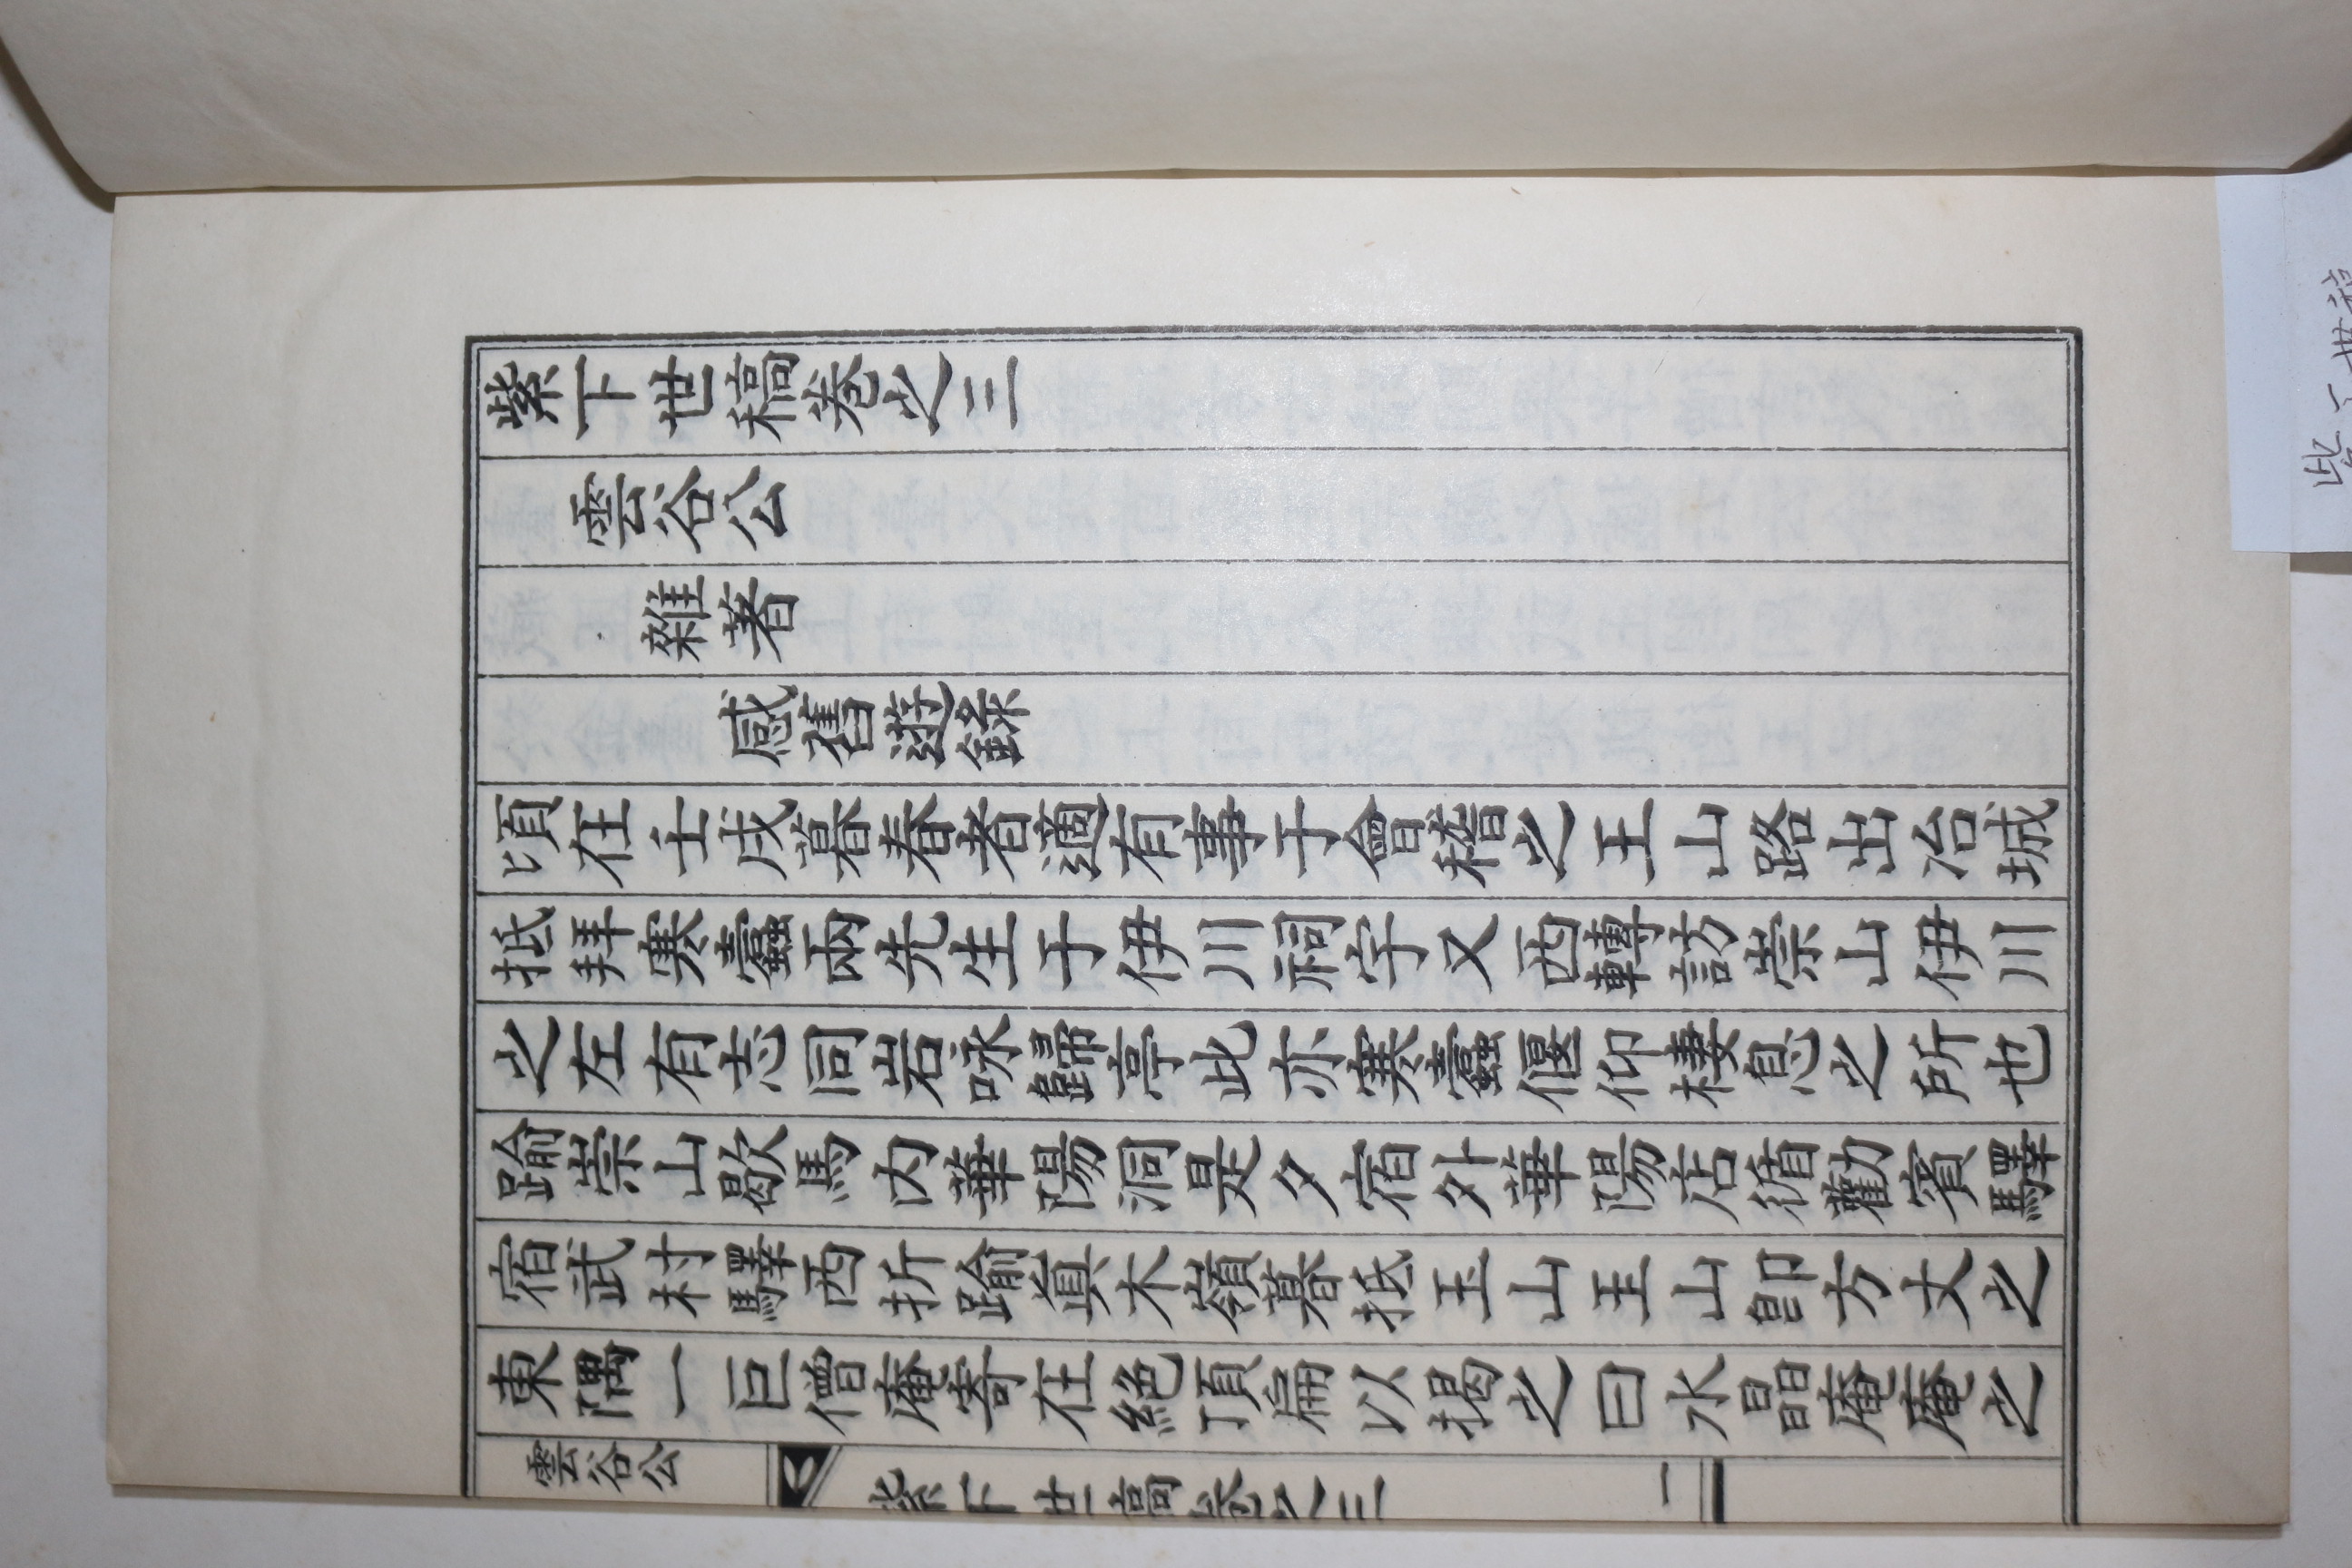 紫下世稿卷之三
雲谷公
雜著
感舊遊錄
頃在壬戌暮春者適有事于會稽之王山路出冶城
抵拜寒蠹兩先生于伊川祠宇又西轉訪崇山伊川
之左有志同岩咏歸亭此亦寒蠹偃仰棲息之所也
踰崇山歇馬内華陽洞是夕宿外華陽店循勸賓驛
宿武村驛西折踰眞木嶺暮抵玉山玉山卽方丈之
東隅一巨僧庵寄在絕頂扁以揭之曰水晶庵庵之
雲谷公
紫下世稿卷之三
一
紫下世稿